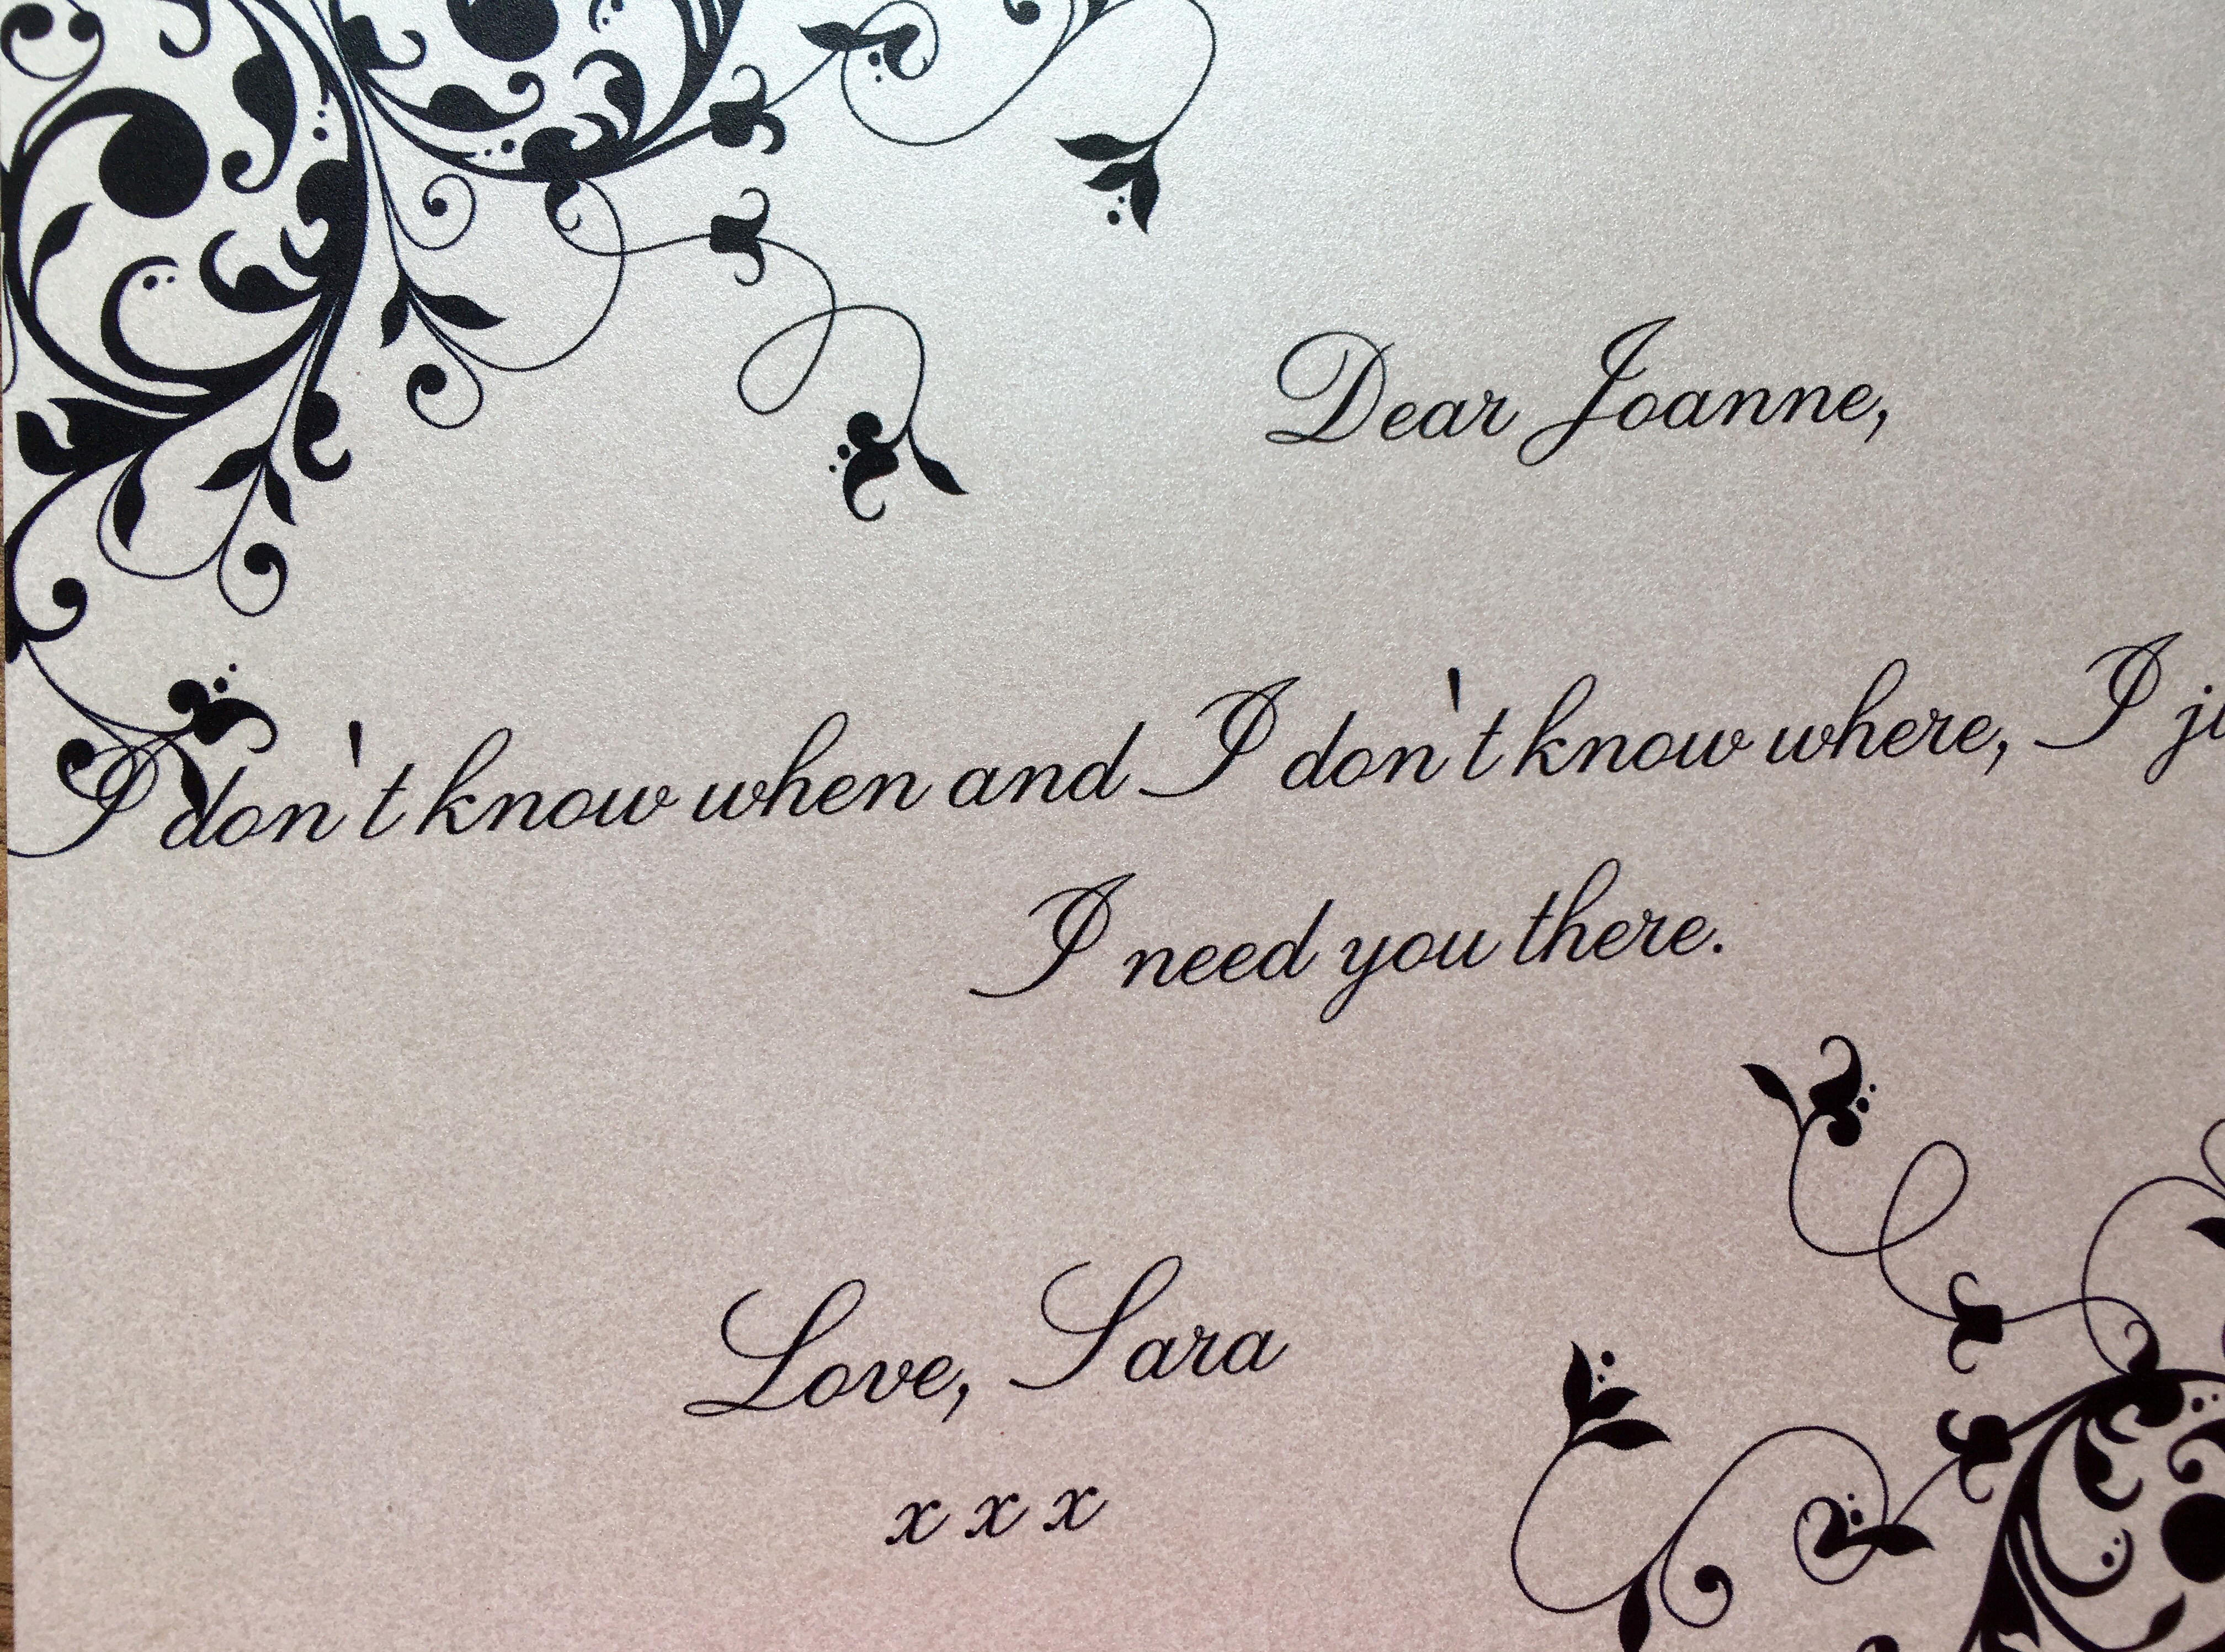 Dear Joanne,
I don't know when and I don't know where, I
I need you there.
Love, Sara
x x x